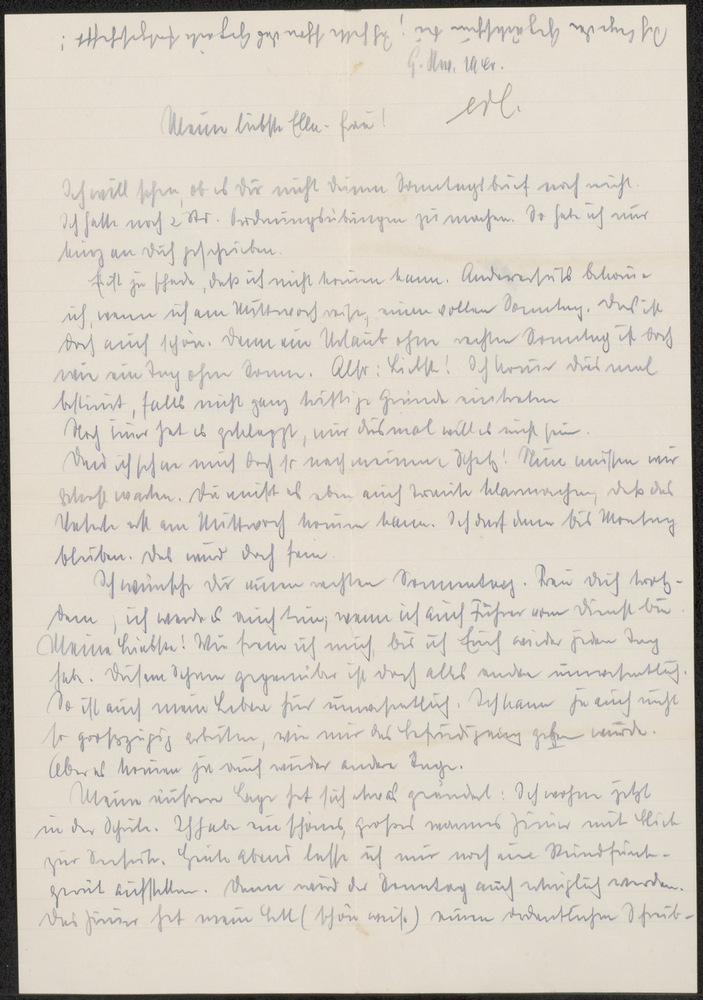 9. Nov. 1940.
Meine liebste Ella-Frau!
Ich will sehen, ob es Dir nicht Deinen Sonntagsbrief noch reicht.
Ich hatte noch 2 Std. Ordnungsübungen zu machen. So habe ich nur
kurz an Dich geschrieben.
Es ist zu schade, daß ich nicht kommen kann. Andererseits bekomme
ich, wenn ich am Mittwoch reise, einen vollen Sonntag. Das ist
doch auch schön. Denn ein Urlaub ohne rechten Sonntag ist doch
wie ein Tag ohne Sonne. Also: Liebste! Ich komme diesmal
bestimmt, falls nicht ganz triftige Gründe eintreten.
Noch immer hat es geklappt, nur diesmal will es nicht sein.
Und ich sehne mich doch so nach meinem Schatz! Nun müssen wir
warten. Du mußt es eben auch klarmachen, daß das
erst am Mittwoch kommen kann. Ich darf dann bis Montag
bleiben. Das wird doch fein.
Ich wünsche Dir einen rechten Sonnentag. Freu Dich trotz-
dem, ich werde es auch tun, wenn ich auch Führer vom Dienst bin.
Meine Liebste! Wie freue ich mich, bis ich Euch wieder jeden Tag
habe. Diesem Sehnen gegenüber ist doch alles andere unwesentlich.
So ist auch mein Leben hier unwesentlich. Ich kann ja auch nicht
so großzügig arbeiten, wie mir das Befriedigung geben würde.
Aber es kommen ja auch wieder andere Tage.
Meine äußere Lage hat sich etwas geändert: Ich wohne jetzt
in der Schule. Ich habe ein schönes, großes warmes Zimmer mit Blick
zur Seeseite. Heute abend lasse ich mir noch ein Rundfunk-
gerät aufstellen. Dann wird der Sonntag auch erträglich werden.
Das Zimmer hat mein Bett (schön weiß) einen ordentlichen Schreib-